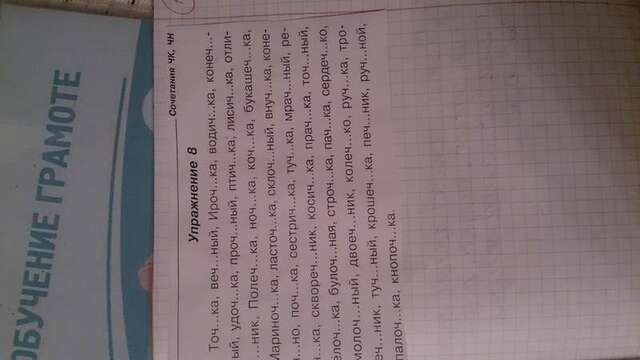 ОБУЧЕНИЕ ГРАМОТЕ
Сочетания ЧК, ЧН
Упражнение 8
Точ...ка, веч...ный, Ироч...ка, водич...ка, конеч...-
ый, удоч...ка, проч...ный, птич...ка, лисич...ка, отли-
...ник, Полеч...ка, ноч...ка, коч...ка, букашеч...ка,
Мариноч...ка, ласточ...ка, склоч...ный, внуч...ка, коне-
ч...но, поч...ка, сестрич...ка, туч...ка, мрач...ный, ре-
ч...ка, сквореч...ник, косич...ка, прач...ка, точ...ный,
ёлоч...ка, булоч...ная, строч...ка, пач...ка, сердеч...ко,
молоч...ный, двоеч...ник, колеч...ко, руч...ка, тро-
еч...ник, туч...ный, крошеч...ка, печ...ник, руч...ной,
палоч...ка, кнопоч...ка.